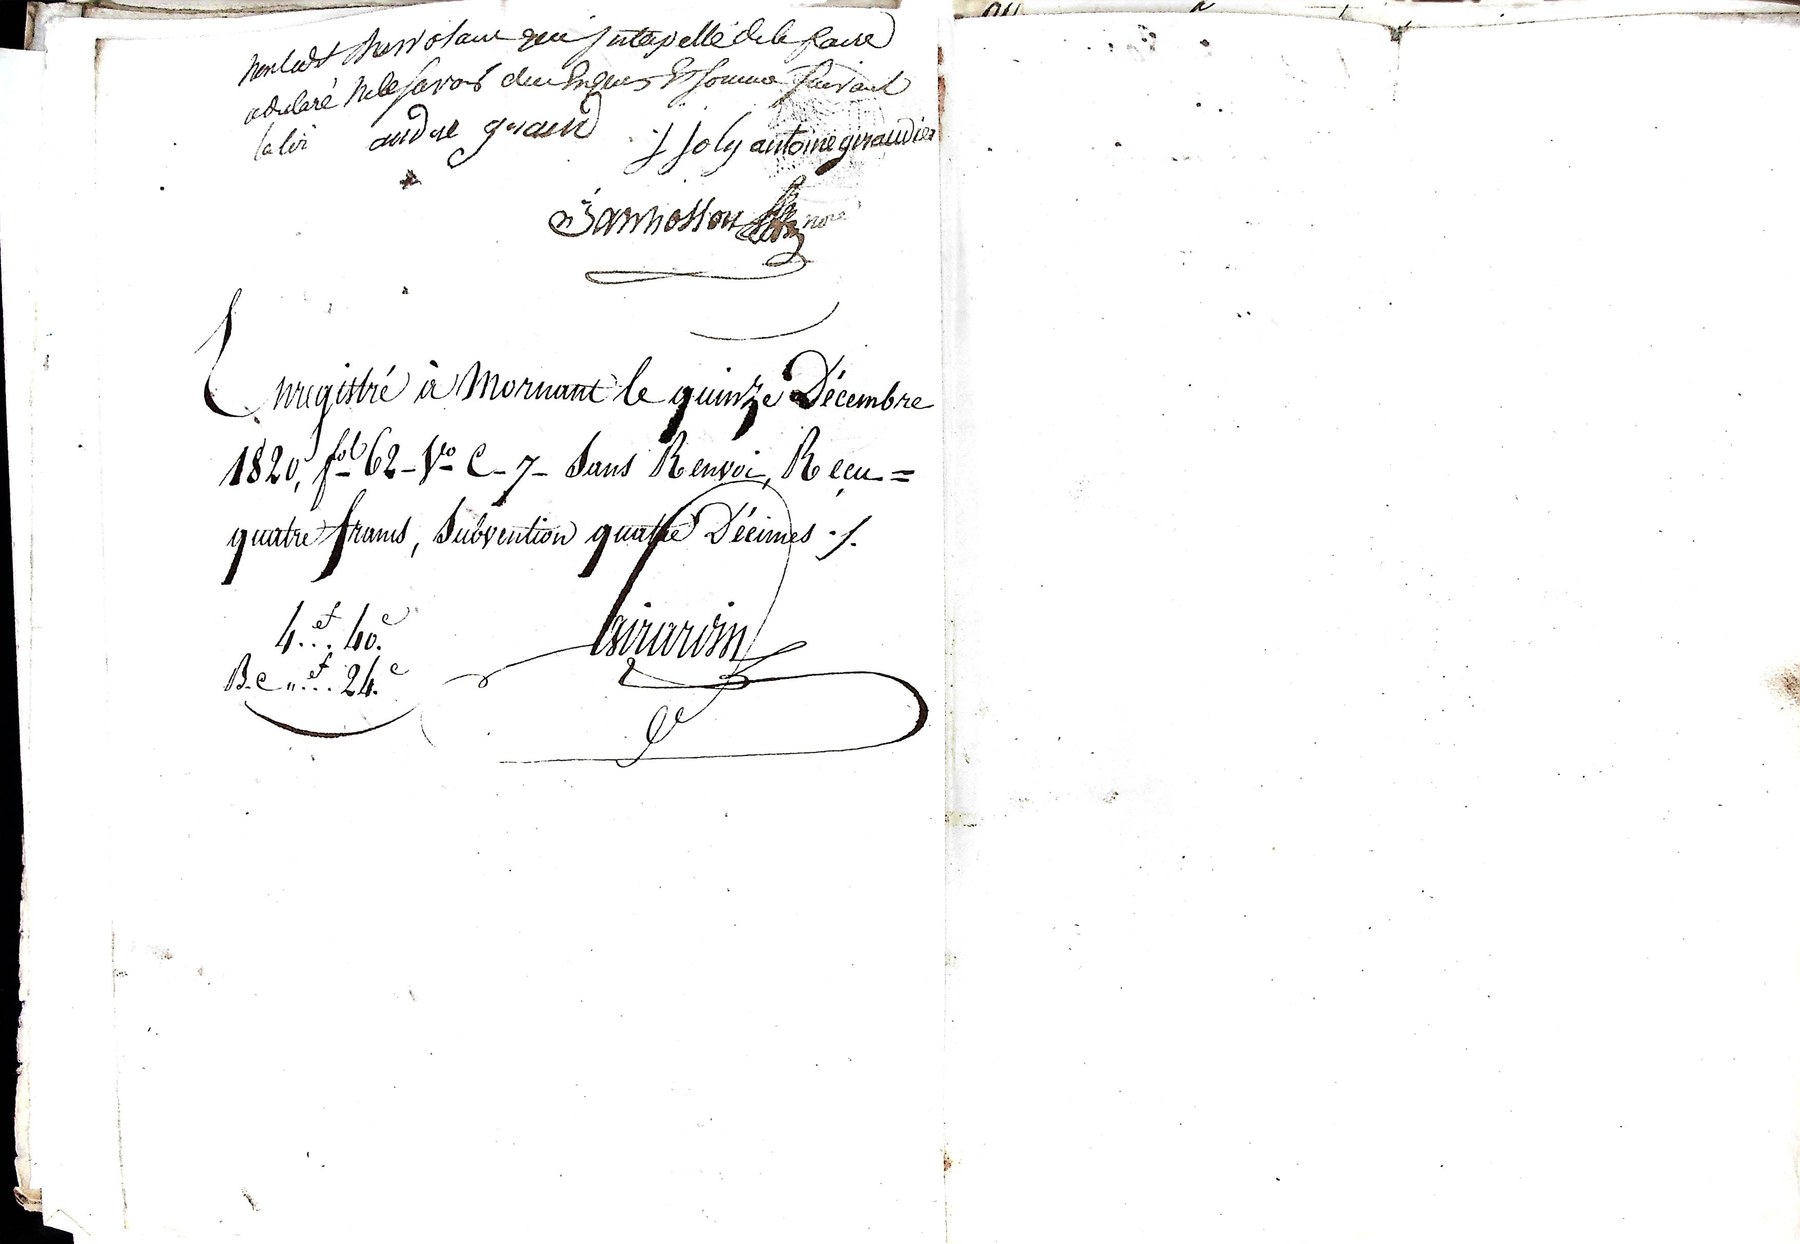 non ledt Chervolane qui sur interpellé de le faire
a déclaré ne le savoir de ce enquis et sommé suivant
la loi andre giraud
J Joly antoine giraudier
Jannosson nore
Enregistré à Mornant le quinze Décembre
1820, fol 62 - Vo C - 7 - Sans Renvoi, Reçu =
quatre francs, Subvention quatre Décimes ./.
4.f.. 40.c
B.e "f... 24.c
Girardin